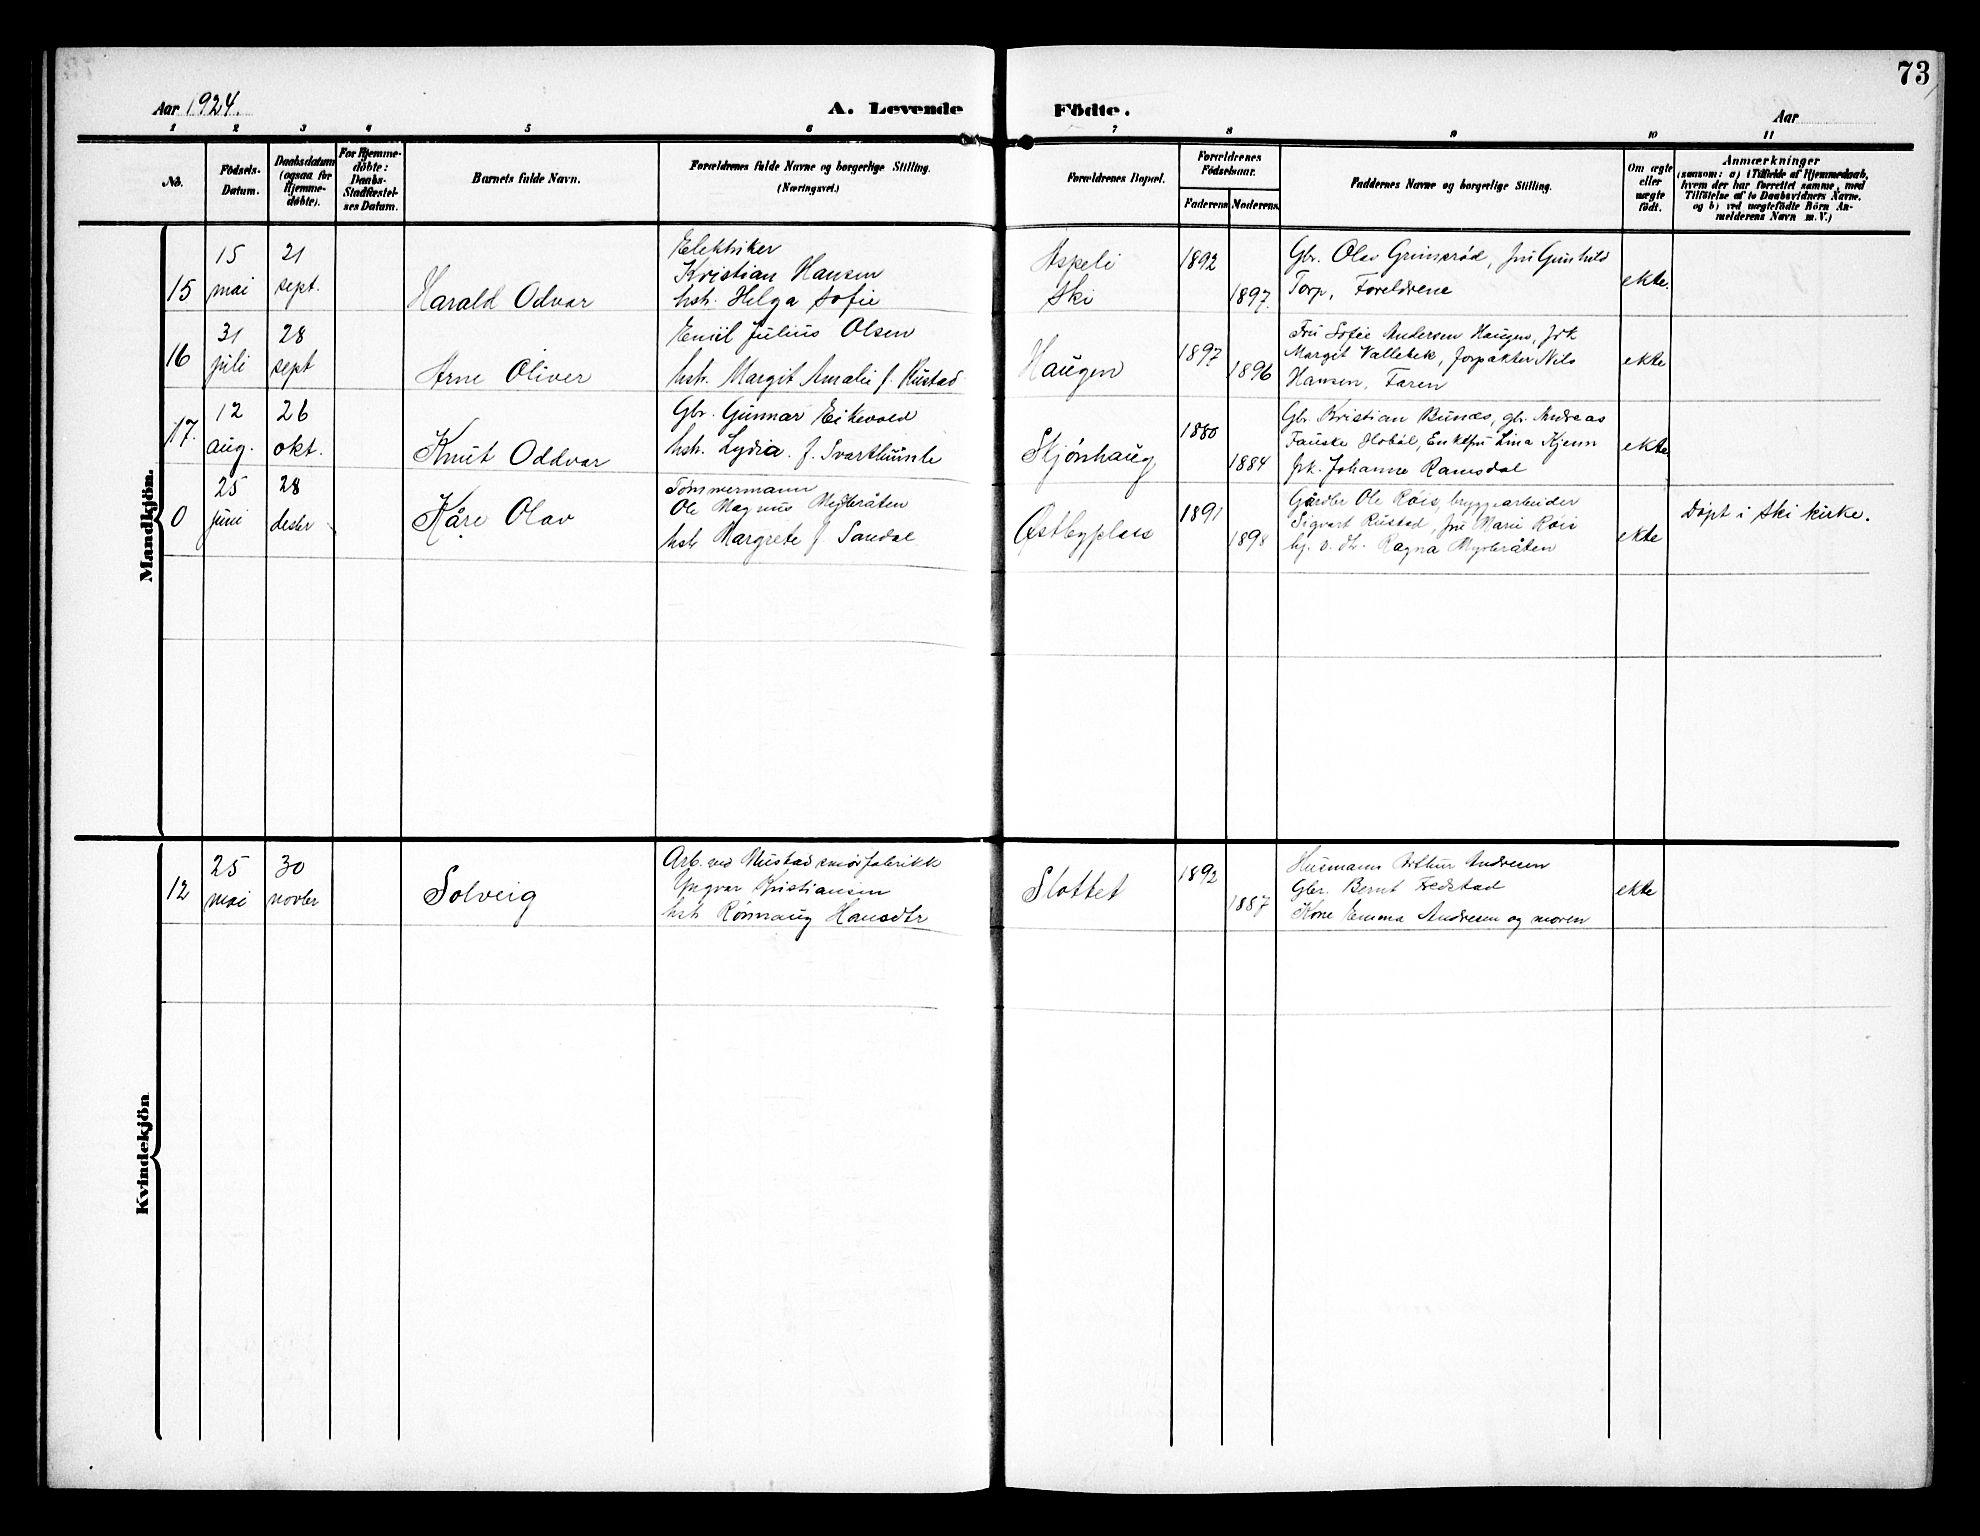 73
Aar 1924.
A. Levende Födte.
Aar
1 2 3 4 5 6 7 8 9 10 11
No.
Födsels-Datum.
Daabsdatum (ogsaa for Hjemme-döbte).
For Hjemme-döbte: Daabs-Stadfæstel-ses Datum.
Barnets fulde Navn.
Forældrenes fulde Navne og borgerlige Stilling.
(Næringsvei.)
Forældrenes Bopæl.
Forældrenes Födselsaar.
Faderens Moderens
Faddernes Navne og borgerlige Stilling.
Om ægte eller uægte födt.
Anmærkninger
(saasom: a) i Tilfælde af Hjemmedaab,
hvem der har forrettet samme, med
Tilföielse af to Daabsvidners Navne.
og b) ved uægtefödte Börn An-
melderens Navn m. V.)
Mandkjön.
15
15 mai
21 sept.
Harald Odvar
Elektriker
Kristian Hansen
hstr. Helga Sofie
Aspeli
Ski
1892
1897.
Gbr. Olav Grimsrød, fru Gunhild
Torp, Foreldrene
ekte.
16
31 juli
28 sept
Arne Oliver
Emil Julius Olsen
hstr. Margit Amalie f. Rustad
Haugen
1897
1896
Fru Sofie Andersen Haugen, frk
Margit Vallebek, forpakter Nils
Hansen, Faren
ekte
17.
12 aug.
26 okt.
Knut Oddvar
Gbr. Gunnar Eikevold
hstr. Lydia f. Svarthumle
Skjønhaug
1880
1884
Gbr. Kristian Bunæs, gbr. Andreas
Fauske Hobøl, Enkefru Lina Kjenn
frk. Johanne Ramsdal
ekte
0
25 juni
28 desbr
Kåre Olav
Tømmermann
Ole Magnus Myrbråten
hstr Margrete f Sandal
Østbyplass
1891
1898
Gårdbr Ole Røis, bryggearbeider
Sigvart Rustad, fru Marie Røis
hj. v. dtr. Ragna Myrbråten
ekte
Døpt i Ski kirke.
Kvindekjön
12
25 mai
30 novbr
Solveig
Arb. ved Mustad smørfabrikk
Yngvar Kristiansen
hstr Rønnaug Hansdtr
Slottet
1892
1887
Husmann Arthur Andresen
Gbr. Bernt Fredstad
Kone Emma Andresen og moren
ekte